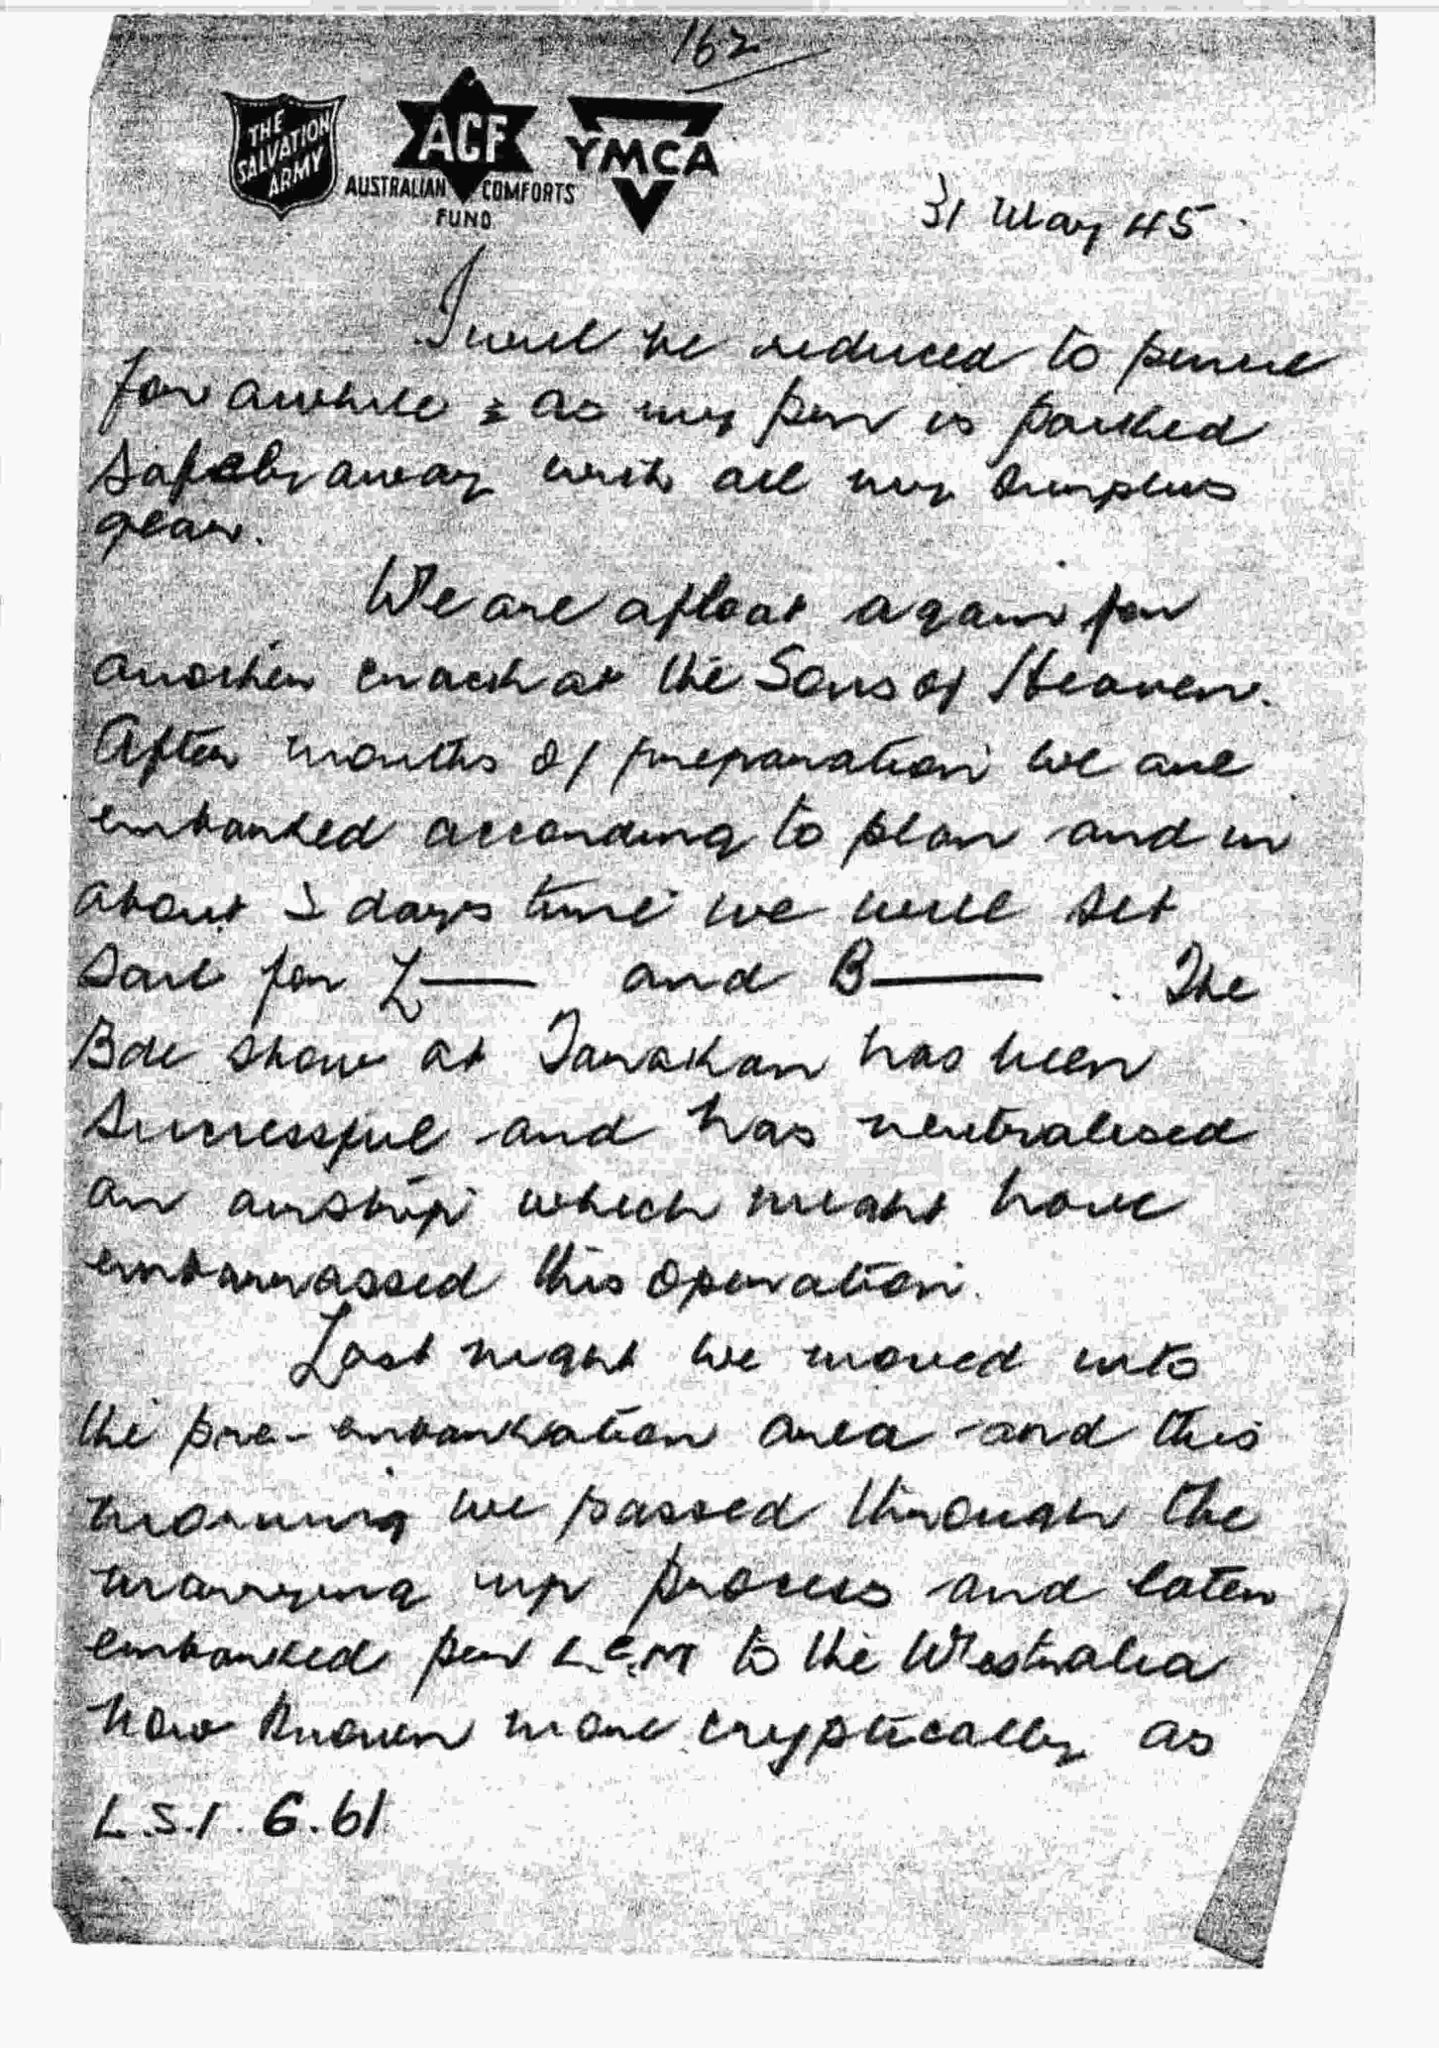 162
THE SALVATION ARMY
ACF
AUSTRALIAN COMFORTS
FUND
YMCA
31 May 45
I will be reduced to pencil
for awhile & as my pen is packed
safely away with all my surplus
gear.
We are afloat again for
another crack at the Sons of Heaven.
After months of preparation we are
embarked according to plan and in
about days time we will set
sail for L—— and B—— . The
Bde show at Tarakan has been
successful and has neutralised
an airstrip which might have
embarrassed this operation.
Last night we moved into
the pre-embarkation area and this
morning we passed through the
marrying up process and later
embarked per L.C.M to the Westralia
now known more cryptically as
L.S.I. 6.61